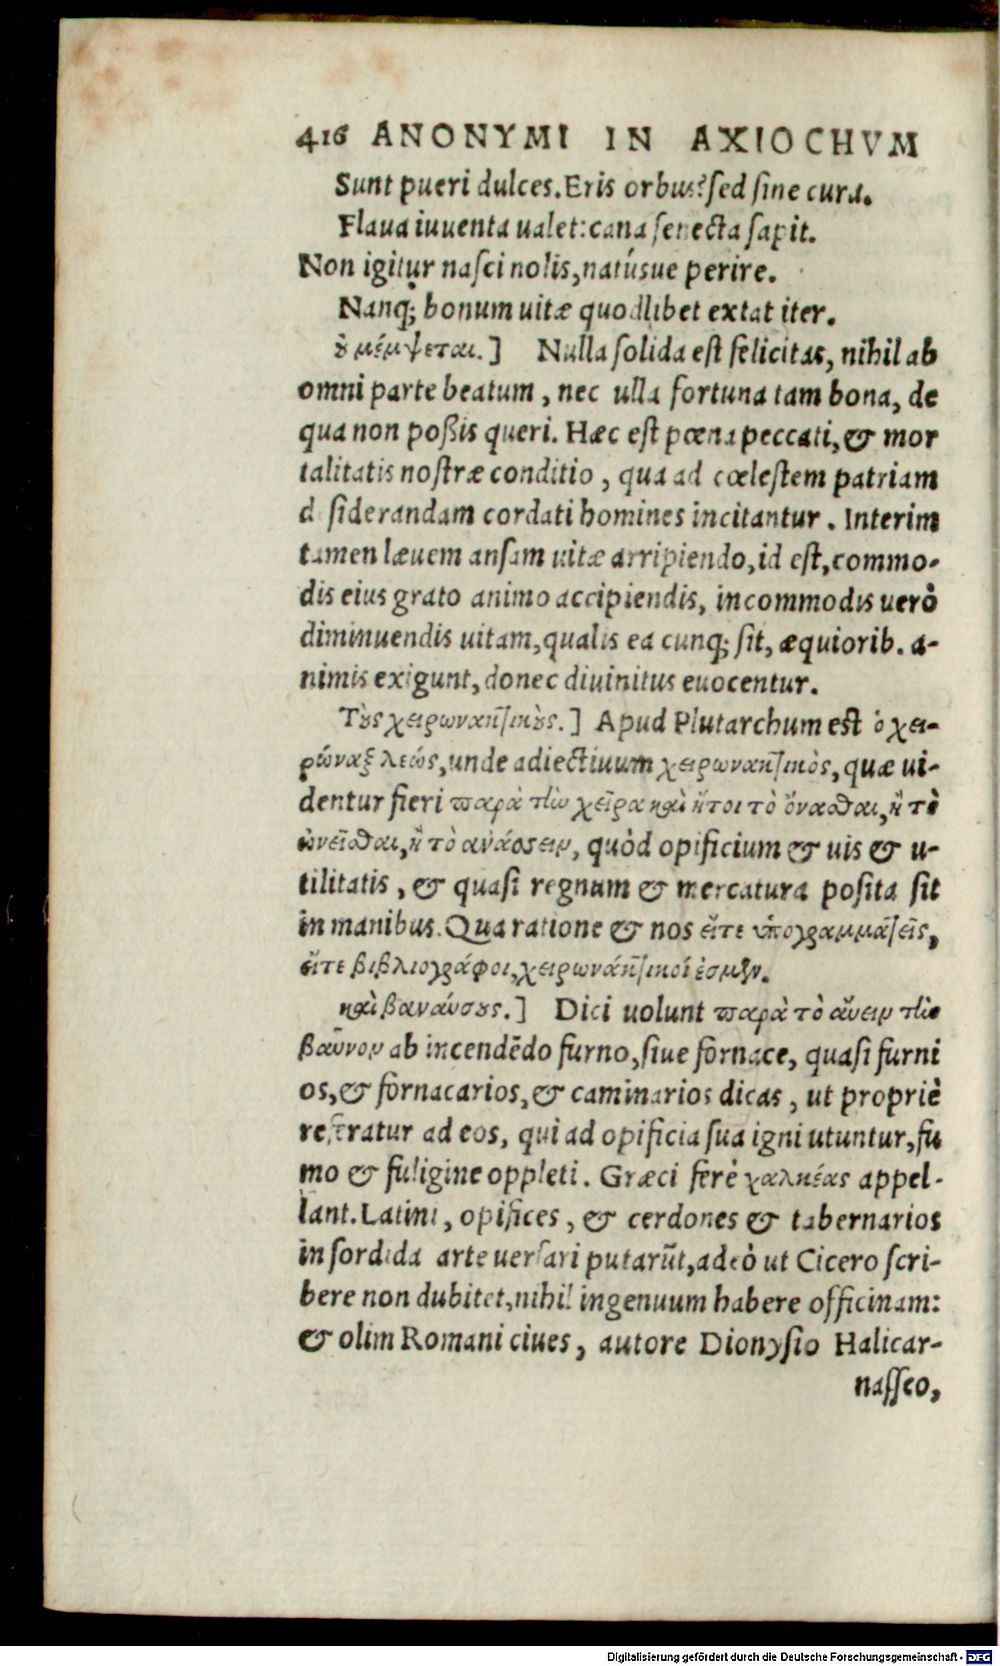 416 ANONYMI IN AXIOCHVM
Sunt pueri dulces. Eris orbus? sed sine cura.
Flaua iuuenta ualet: cana senecta sapit.
Non igitur nasci nolis, natúsue perire.
Nanq; bonum uitæ quodlibet extat iter.
ȣ μέμψεται.] Nulla solida est felicitas, nihil ab
omni parte beatum, nec ulla fortuna tam bona, de
qua non poßis queri. Hæc est pœna peccati, & mor
talitatis nostræ conditio, qua ad cœlestem patriam
d siderandam cordati homines incitantur. Interim
tamen læuem ansam uitæ arripiendo, id est, commo-
dis eius grato animo accipiendis, incommodis uerò
diminuendis uitam, qualis ea cunq; sit, æquiorib. a-
nimis exigunt, donec diuinitus euocentur.
Τȣ̀ς χειρωνακτικȣ́ς.] Apud Plutarchum est ὁ χει-
ρώναξ λεώς, unde adiectiuum χειρωνακτικὸς, quæ ui-
dentur fieri παρὰ τὴν χεῖρα καὶ ἤτοι τὸ ὄνασθαι, ἢ τὸ
ὠνεῖσθαι, ἢ τὸ ἀνάσσειν, quòd opificium & uis & u-
tilitatis, & quasi regnum & mercatura posita sit
in manibus. Qua ratione & nos εἴτε ὑπογραμματεῖς,
εἴτε βιβλιογράφοι, χειρωνάκτικοί ἐσμεν.
καὶ βαναύσȣς.] Dici uolunt παρὰ τὸ αὔειν τὸν
βαῦνον ab incendēdo furno, siue fornace, quasi furni
os, & fornacarios, & caminarios dicas, ut propriè
referatur ad eos, qui ad opificia sua igni utuntur, fu
mo & fuligine oppleti. Græci ferè χαλκέας appel-
lant. Latini, opifices, & cerdones & tabernarios
in sordida arte uersari putarūt, adeò ut Cicero scri-
bere non dubitet, nihil ingenuum habere officinam:
& olim Romani ciues, autore Dionysio Halicar-
nasseo,
Digitalisierung gefördert durch die Deutsche Forschungsgemeinschaft - DFG